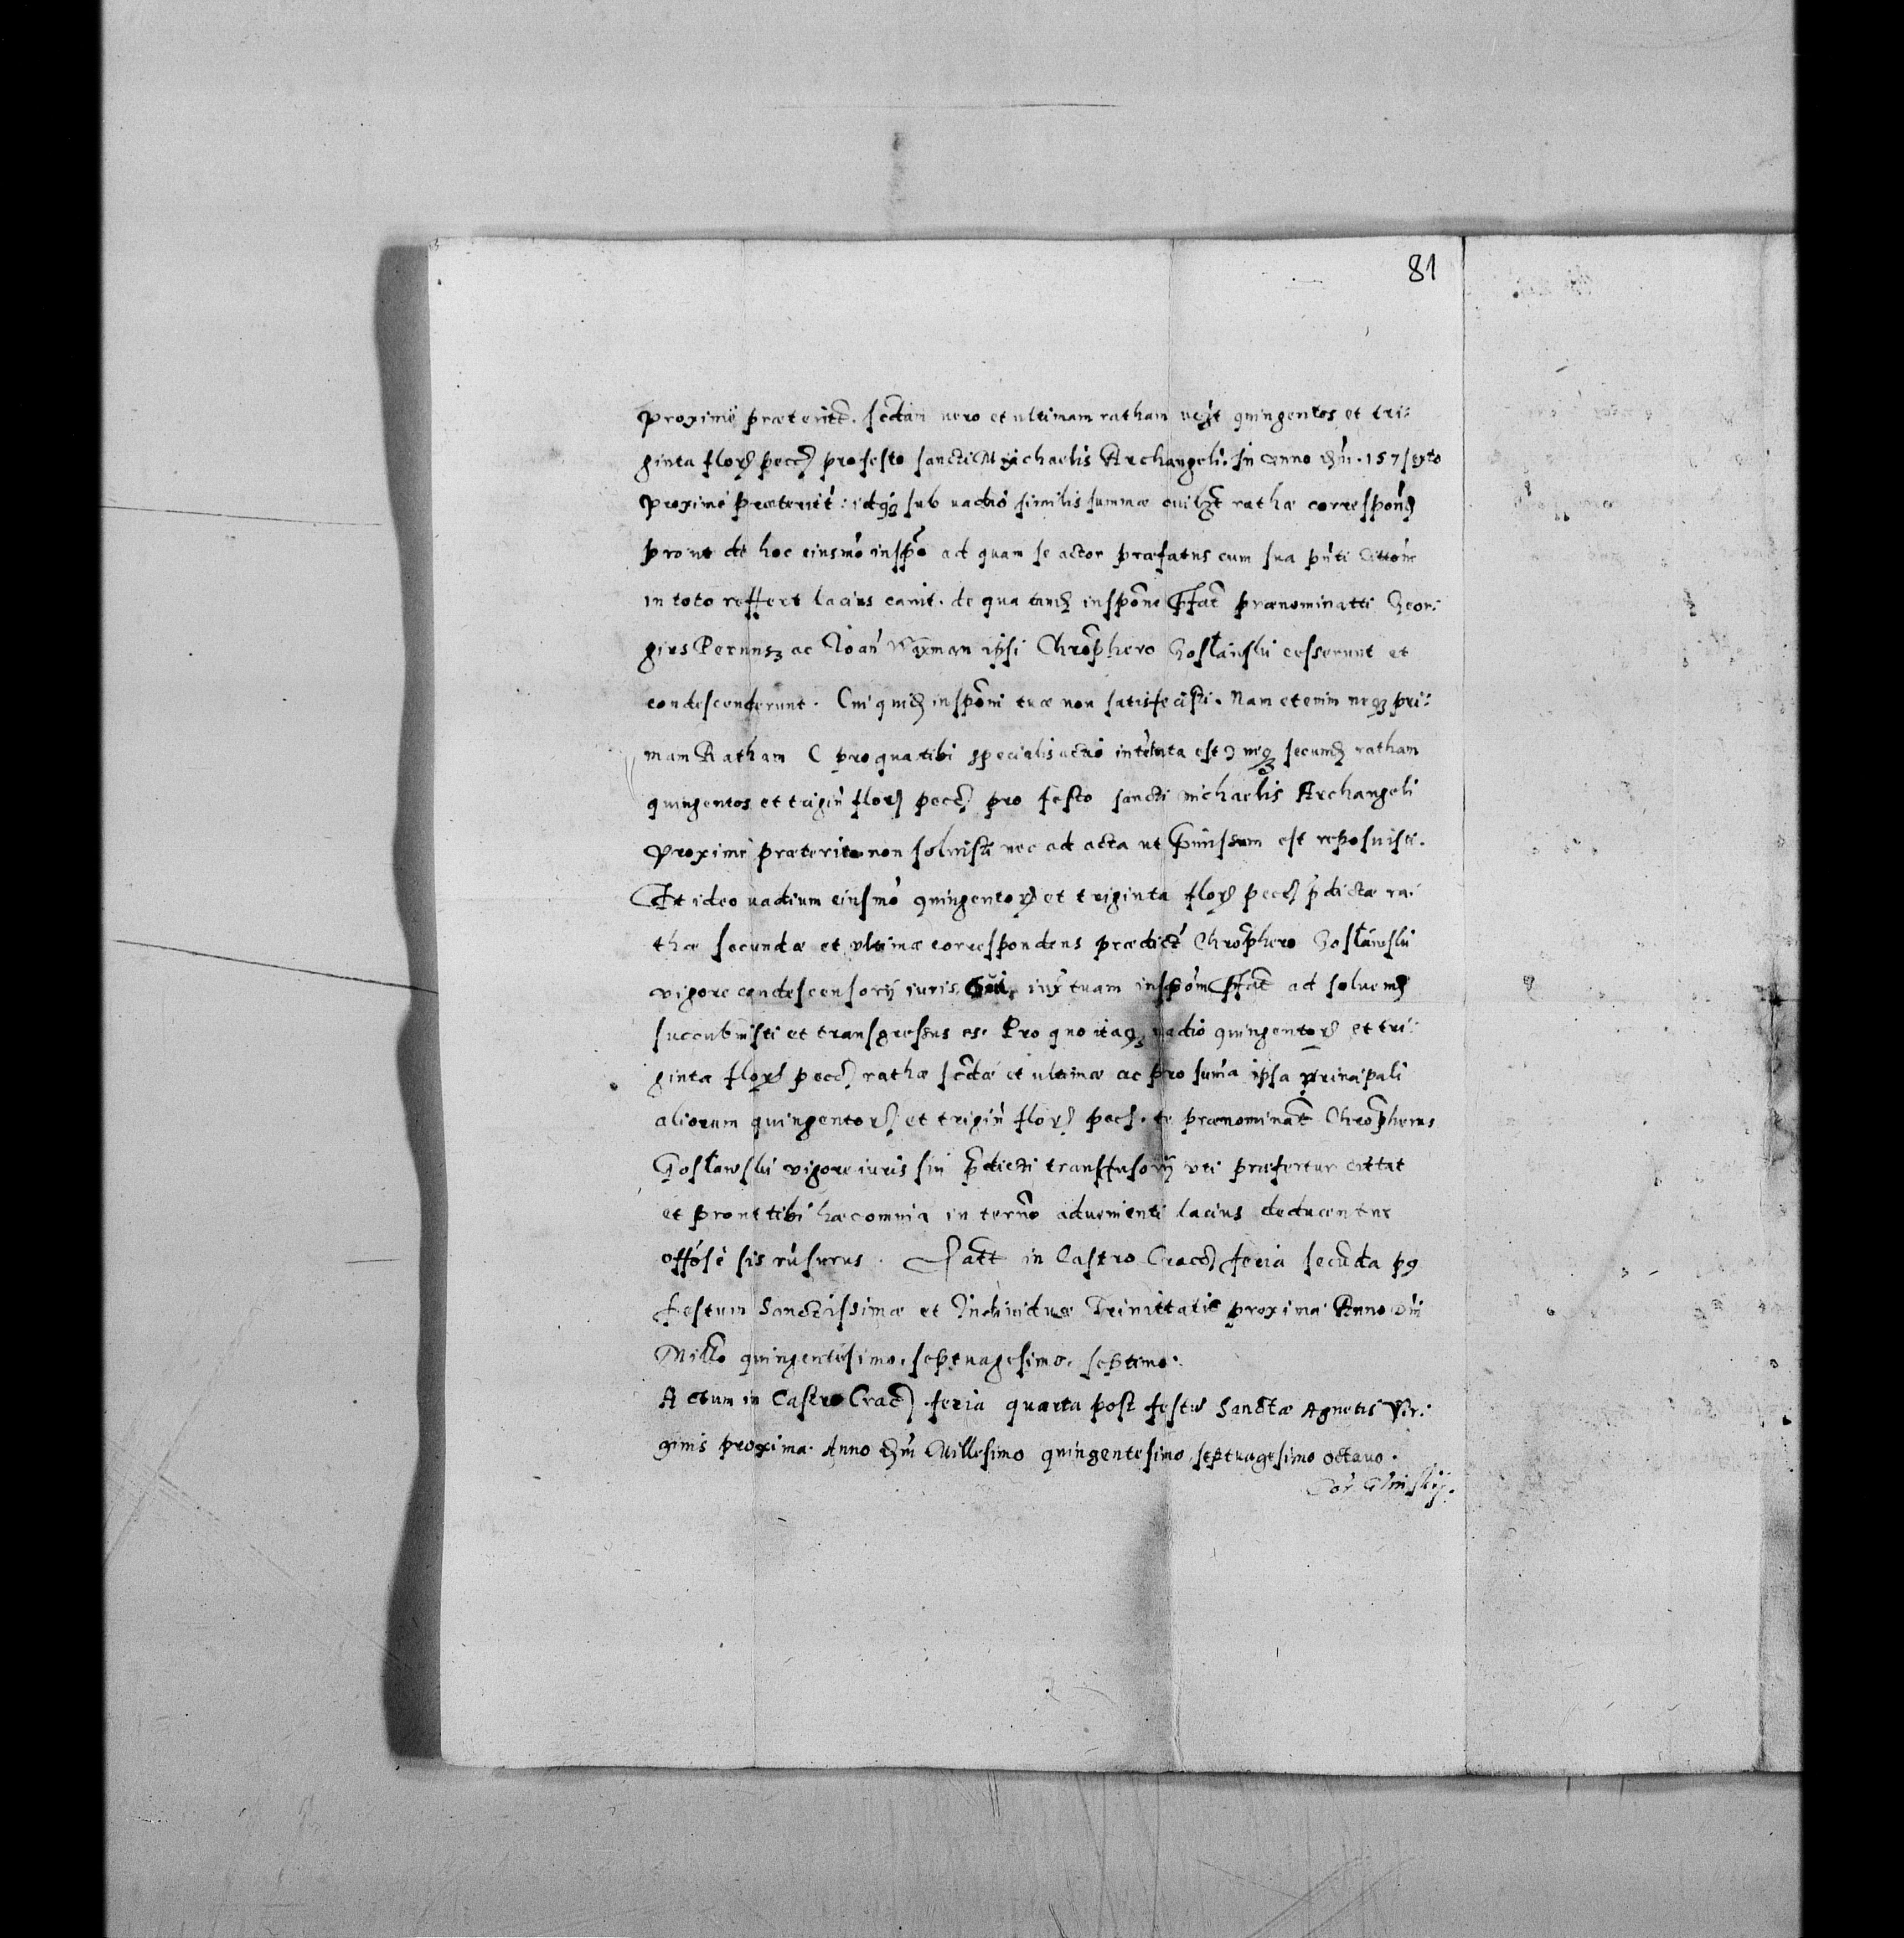 81
proxime præterit̃. sc̃dam vero et ultimam ratham vczt quingentos et tri:
ginta flor̃ pecc̃ pro festo sancti Michaelis Archangeli. in Anno dm̃. 157 sexto
proxime præterit: idq3 sub vadio similis summæ cuilz̃t rathæ correspon̄d
prout de hoc eiusmõ inspõ ad quam se actor præfatus cum sua pñti cittõne
in toto reffert lacius canit. de qua tand̃ inspõne præfat̃ prænominatti Geor:
gius Pernus3 ac Joañ Waxman ipsi Chrop̃hero Gosławski cesserunt et
condescenderunt. Cui quid̃ inspõni tuæ non satisfecisti. Nam etenim neq3 pri:
mam Ratham ( pro qua tibi specialis actio intentata est ) neq3 secund̃ ratham
quingentos et trigiñ flor̃ pecc̃ pro festo sancti Michaelis Archangeli
proxime præterito non solvisti nec ad acta ut p̃missum est reposuisti.
Et ideo vadium eiusmõ quingentor̃ et triginta flor̃ pecc̃ p̃dictæ ra:
thæ secundæ et ultimæ correspondens prædict̃ Chrop̃hero Gosławski
vigore condescensorij iuris sui, iux̃ tuam inspõm præfat̃ ad solvend̃
succubuisti et transgressus es. Pro quo itaq3 vadio quingentor̃ et tri:
ginta flor̃ pecc̃ rathæ sc̃dæ et ultimæ ac pro sum̃a ipsa principali
aliorum quingentor̃ et trigiñ flor̃ pecc̃. te prænominat̃ Chrop̃herus
Gosławski vigore iuris sui p̃dicti transfusorij uti præfertur cittat
et prout tibi hæc omnia in termĩo advenienti lacius deducentur
offõse sis rñsurus. Datt in Castro Cracc̃ feria secũda p9
festum Sanctissimæ et Individuæ Trinittatis proxima Anno dñi
Mill̃o quingentesimo, septuagesimo, septimo.
Actum in Castro Crac̃ feria quarta post festũ Sanctæ Agnetis Vir:
ginis proxima. Anno dñi Millesimo quingentesimo septuagesimo octavo.
Glinskij.